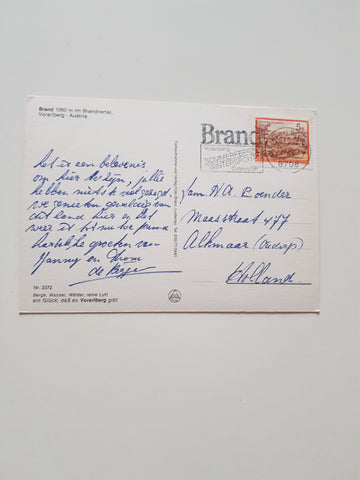 Brand 1050 m im Brandnertal,
Vorarlberg - Austria
het is een belevenis
om hier te zijn, jullie
hebben niets te veel gezegd,
we genieten geweldig van
dit land hier en het
weer is tot nu toe prima
hartelijke groeten van
Fam. W.A. Poender
Meesstraat 477
Alkmaar
Holland.
Brand
Vorarlberg
SOMMERFERIEN
WINTERSPORT
Österreich
6708
5
Nr. 2372
Berge, Wasser, Wälder, reine Luft
ein Glück, daß es Vorarlberg gibt